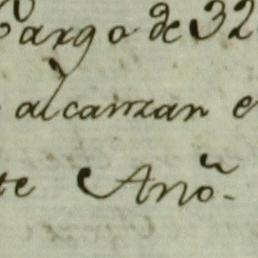 Cargo de 32
alcanzan e
te Año.